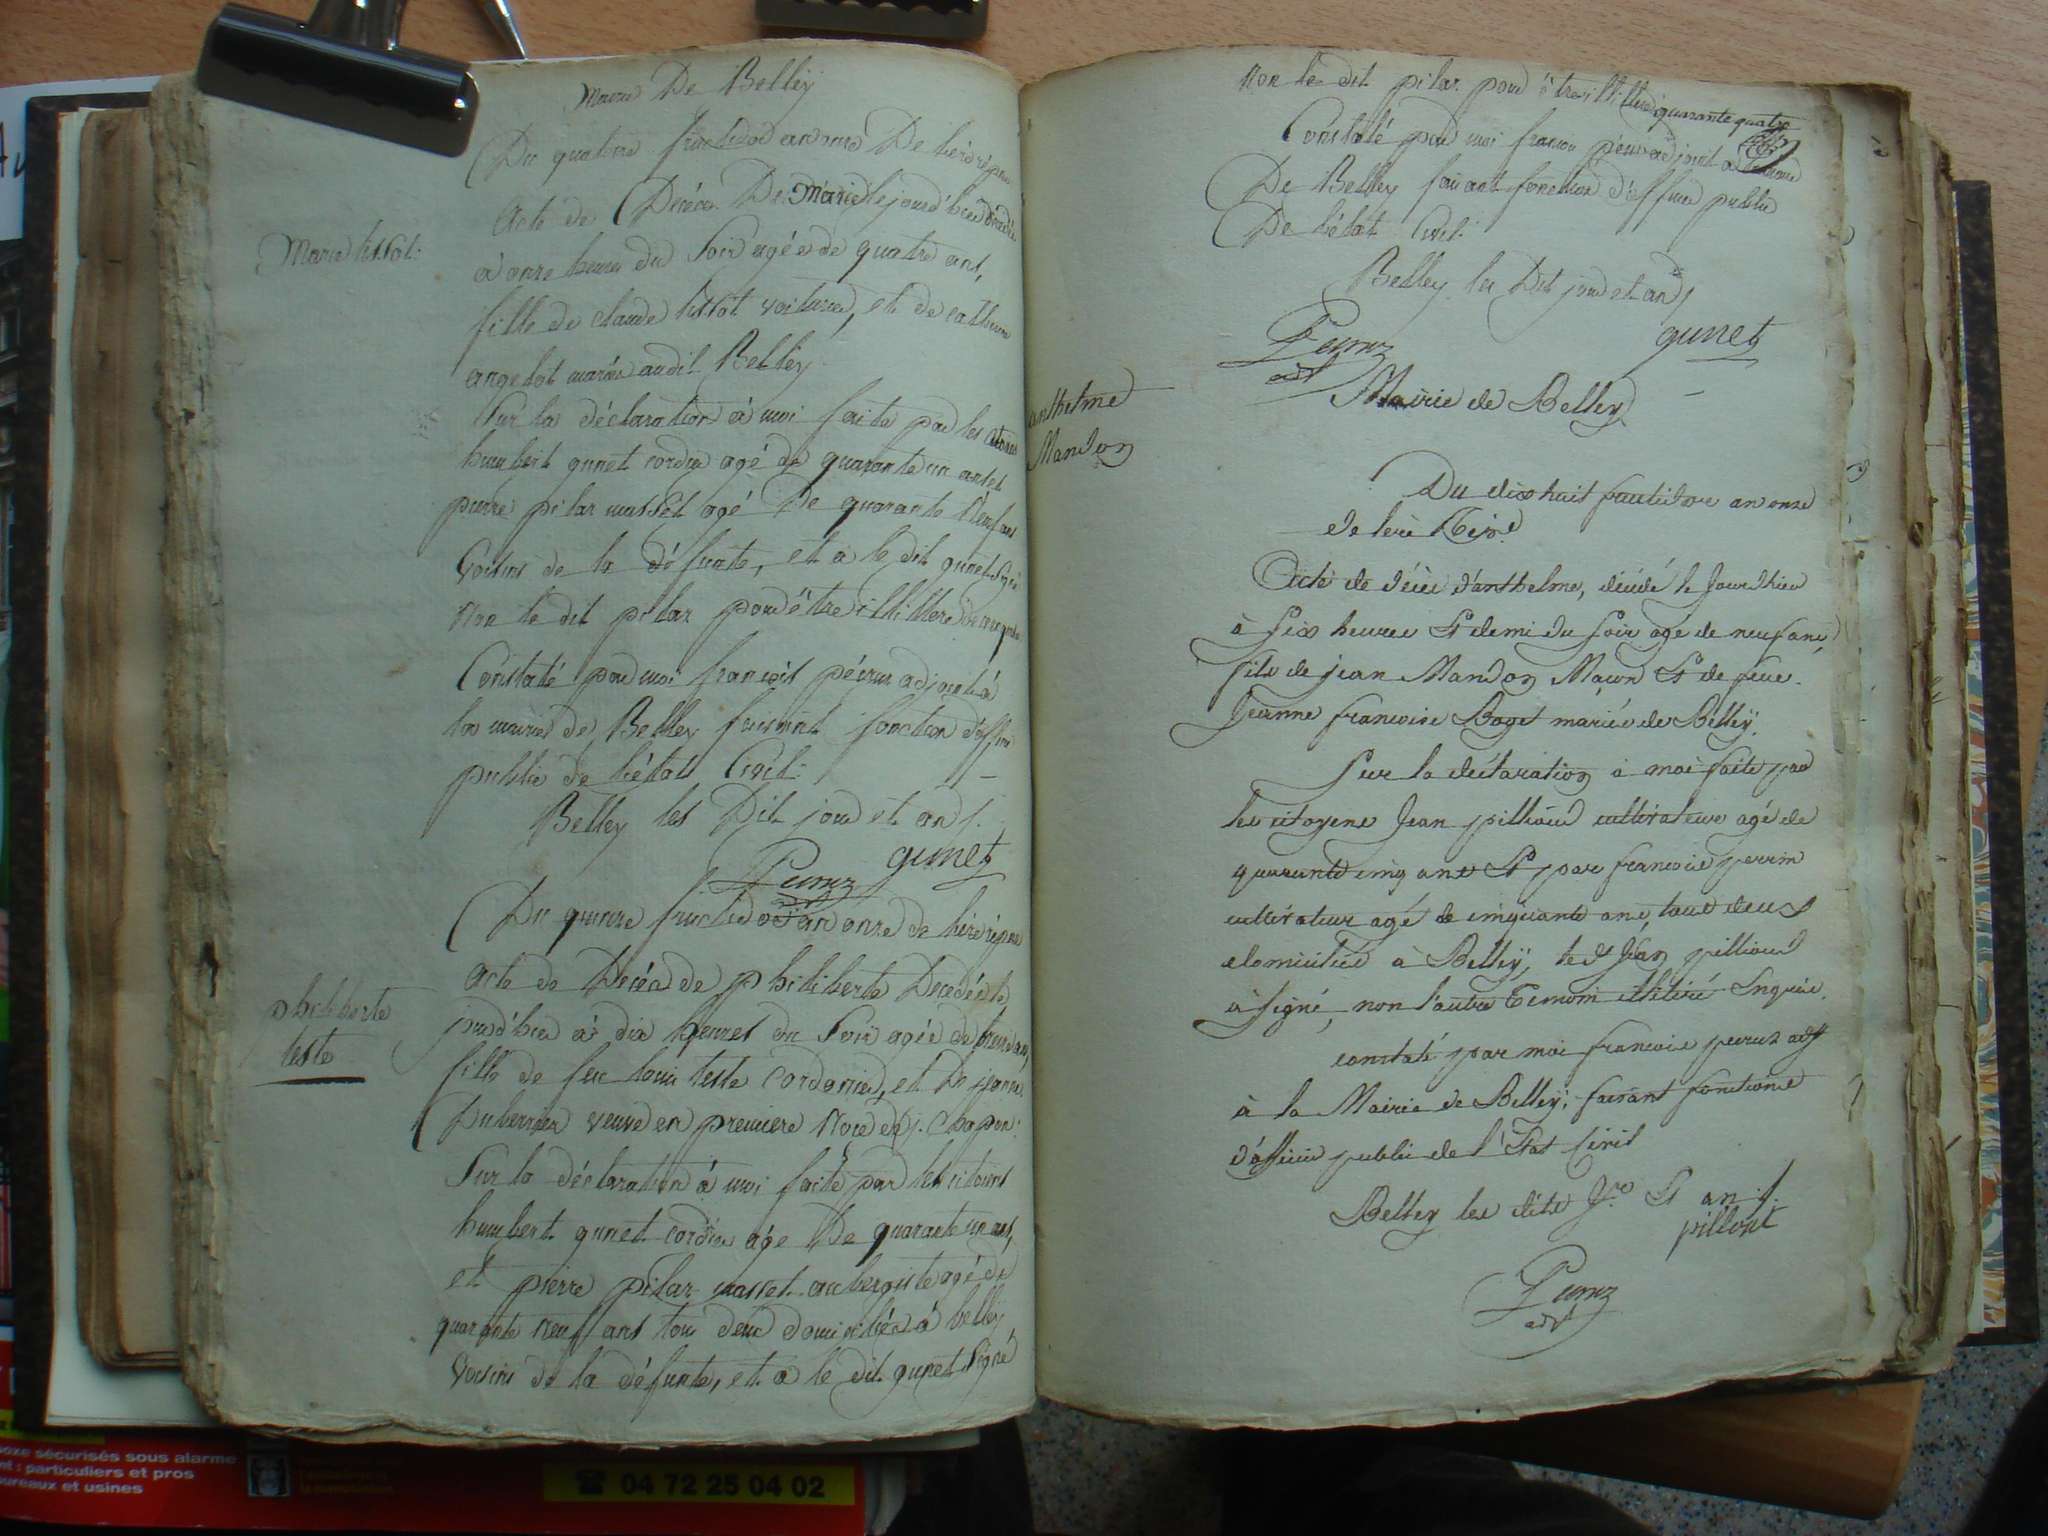 Mairie De Belley
Du quatorze fructidor an onze De l'ere repne
Marie tissot:
Acte de Décéa De Marie le jourd'hier décédée
à onze heures du Soir agée de quatre ans,
fille de claude tissot voiturier, et de catherine
angelot mariés audit Belley
Sur la déclaration à moi faite par les citoiens
humbert gunet cordier agé de quarante un ans et
pierre pilar masset agé De quarante Neuf ans
Voisins de la défunte, et a le dit gunet signé
Non le dit pilar pour être illittéré de ce enquis
Constaté par moi françois péeruz adjoint à
la mairie de Belley faisant fonction d'officier
public de l'état Civil:
Belley les Dit jour et an ʃ.
Peeruz gunet
adjt
Du quinze fructidor an onze de l'ère répne
philiberte
teste
Acte de Décéa de philiberte Décédée le
jourd'hier à dix heures du Soir agée de ans,
fille de feu louis teste Cordonier, et De jeanne
veuve en premiere Noce de j. Chapon:
Sur la déclaration à moi faite par les citoiens
humbert gunet cordier agé De quarante un ans,
et pierre pilar masset aubergiste agé de
quarante neuf ans tous deux domiciliés à belley
Voisins de la défunte, et a le dit gunet Signé
Non le dit pilar pour être illittéré quarante quatre
Constaté par moi françois péeruz adjoint a la mairie
De Belley faisant fonction d'officier public
De l'état Civil:
Belley les Dit jour et an ʃ
Peeruz gunet
adjt
Mairie de Belley
anthelme
Mandon
Du dix huit fructidor an onze
de l'erè Repe.
Acte de décès d'anthelme, décédé le jourdhier
à six heures Et demi du soir agé de neuf ans,
fils de jean Mandon Maçon Et de feue
Jeanne françoise Boget mariés de Belleÿ.
Sur la déclaration à moi faite par
les citoyens Jean pilliout cultivateur agé de
quarante cinq ans Et par françois perrin
cultivateur agé de cinquante ans, tous deux
domiciliés à Belleÿ, led. Jean pilliout
à signé, non l'autre Témoin illitéré Enquis.
constaté par moi françois peeruz adjt
à la Mairie de Belleÿ, faisant fonctions
d'officier public de l'Etat Civil
Belley les dits Jrs Et an ʃ.
pillout
Peeruz
adjt
oxe sécurisés sous alarme
nt : particuliers et pros
ureaux et usines
☎ 04 72 25 04 02